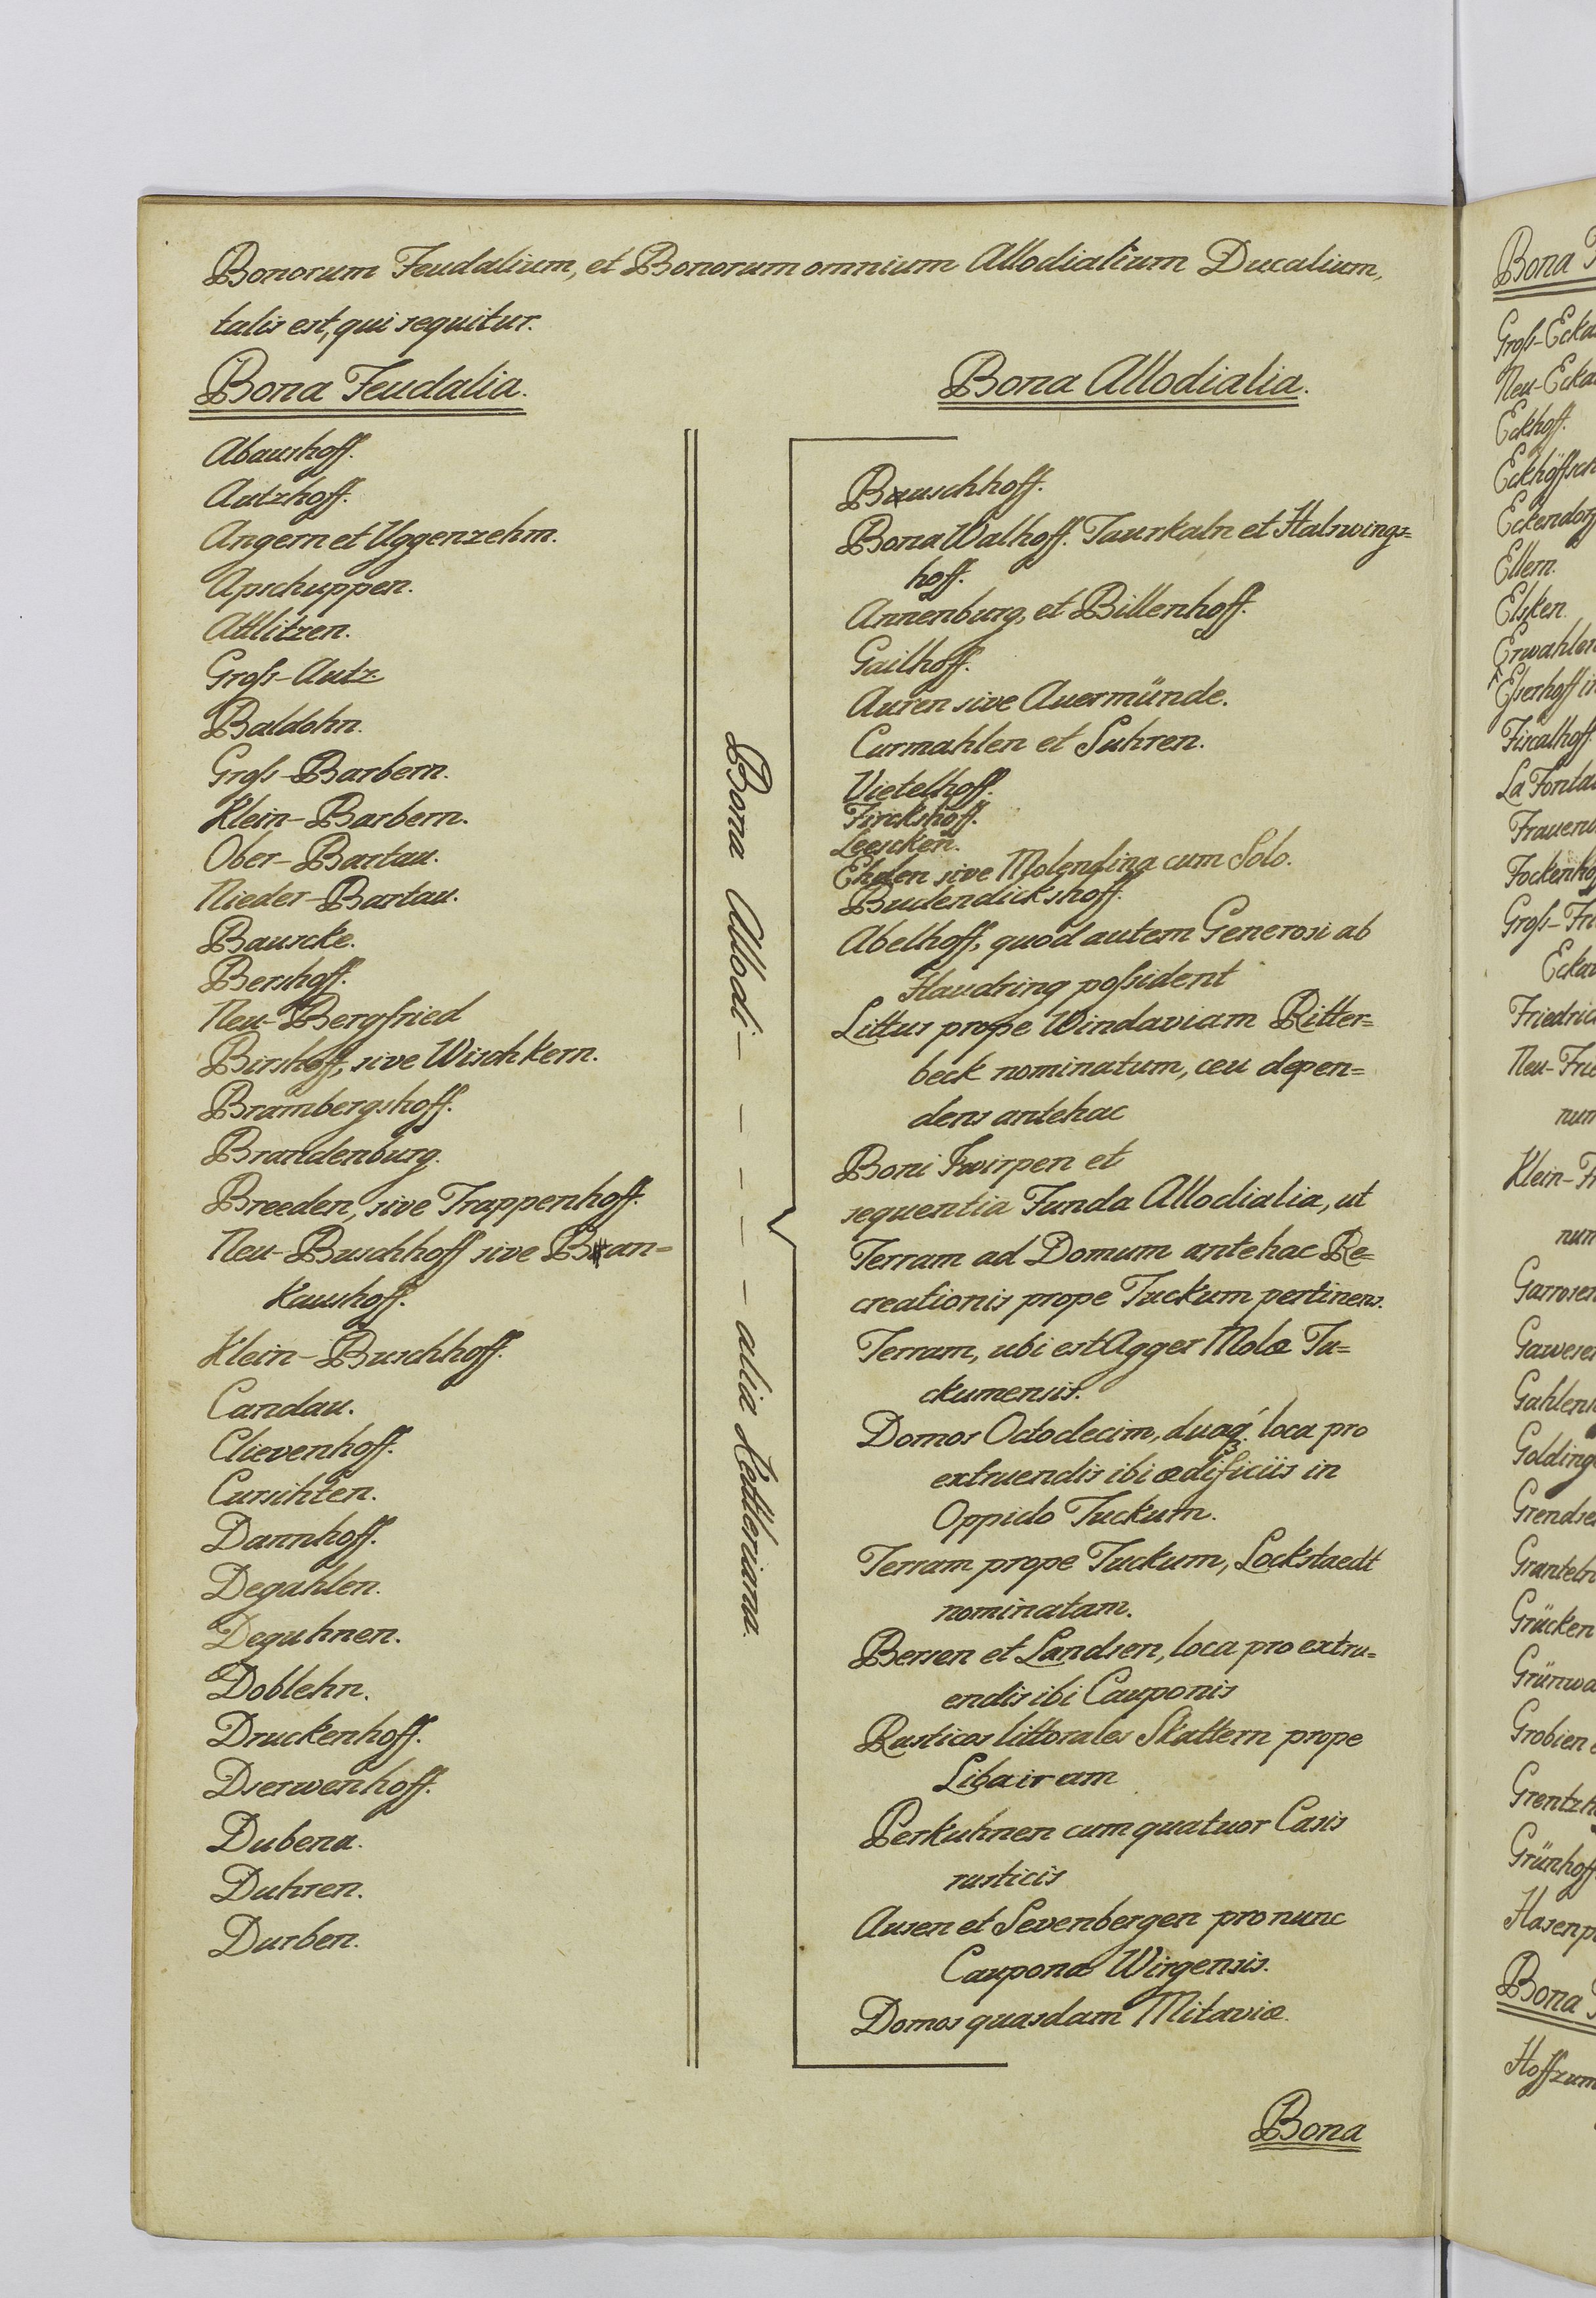 Bonorum Feudalium, et Bonorum omnium Allodialium Ducalium,
talis est, qui sequitur.
Bona Feudalia.
Abaushoff.
Autzhoff.
Angern et Uggenzehm.
Apschuppen.
Attlitzen.
Groß-Autz.
Baldohn.
Groß-Barbern.
Klein-Barbern.
Ober-Bartau.
Nieder-Bartau.
Bauscke.
Bershoff.
Neu-Bergfried
Birshoff, sive Wischkern.
Brambergshoff.
Brandenburg.
Breeden, sive Trappenhoff.
Neu-Buschhoff sive Bran=
kaushoff.
Klein-Buschhoff.
Candau.
Clievenhoff.
Cursihten.
Dannhoff.
Degahlen.
Deguhnen.
Doblehn.
Druckenhoff.
Dserwenhoff.
Dubena.
Duhren.
Durben.
Bona Allodi- - - - - alia Kettleriana.
Bona Allodialia.
Bauschhoff.
Bona Walhoff. Taurkaln et Halswings=
hoff.
Annenburg, et Billenhoff.
Gailhoff.
Auren sive Auermünde.
Curmahlen et Suhren.
Vietelhoff.
Firckshoff.
Leescken.
Ehden sive Molendina cum Solo.
Budendickshoff.
Abelhoff, quod autem Generosi ab
Haudring poßident
Littus prope Windaviam Ritter=
beck nominatum, ceu depen=
dens antehac
Boni Zwirpen et
sequentia Funda Allodialia, ut
Terram ad Domum antehac Re=
creationis prope Tuckum pertinens.
Terram, ubi est Agger Molæ Tu=
ckumensis.
Domos Octodecim, duaq́ꝫ loca pro
extruendis ibi ædificiis in
Oppido Tuckum.
Terram prope Tuckum, Lockstaedt
nominatam.
Bersen et Landsen, loca pro extru=
endis ibi Cauponis
Rusticos littorales Skattern prope
Libaviam
Perkuhnen cum quatuor Casis
rusticis
Ausen et Sevenbergen pro nunc
Cauponæ Wirgensis.
Domos quasdam Mitaviæ.
Bona
Bona
Groß-Ecka
Neu-Ecka
Eckhoff.
Eckhöffsch
Eckendorf
Ellern.
Elsken.
Erwahlen
Eserhoff in
Fiscalhoff.
La Fontai
Frauenb
Fockenhof
Groß-Fri
Ecka
Friedric
Neu-Frie
nun
Klein-Fr
nun
Garrosen
Gawesen
Gahlen
Golding
Grendse
Grantel
Grücken
Grünwa
Grobien
Grentzh
Grünhoff
Hasenp
Bona
Hoffzum